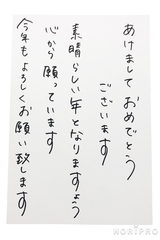 あけましておめでとう
ございます
素晴らしい年となりますよう
心から願っています
今年もよろしくお願い致します
HORIPRO